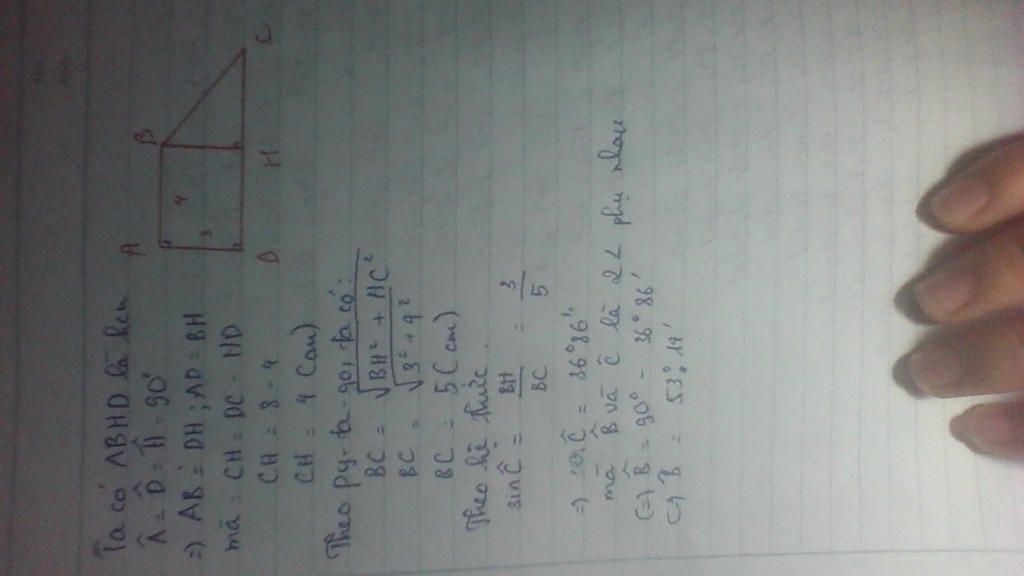 A B
4
3
D H C
Ta có ABHD là hcn
Â = D̂ = Ĥ = 90°
=) AB = DH ; AD = BH
mà : CH = DC - HD
CH = 8 - 4
CH = 4 (cm)
Theo py-ta-go, ta có:
BC = √BH² + HC²
BC = √3² + 4²
BC = 5 (cm)
Theo hệ thức
sinĈ = BH/BC = 3/5
=) Ĉ = 36°86'
mà B̂ và Ĉ là 2 < phụ nhau
(=) B̂ = 90° - 36°86'
(=) B̂ = 53°14'